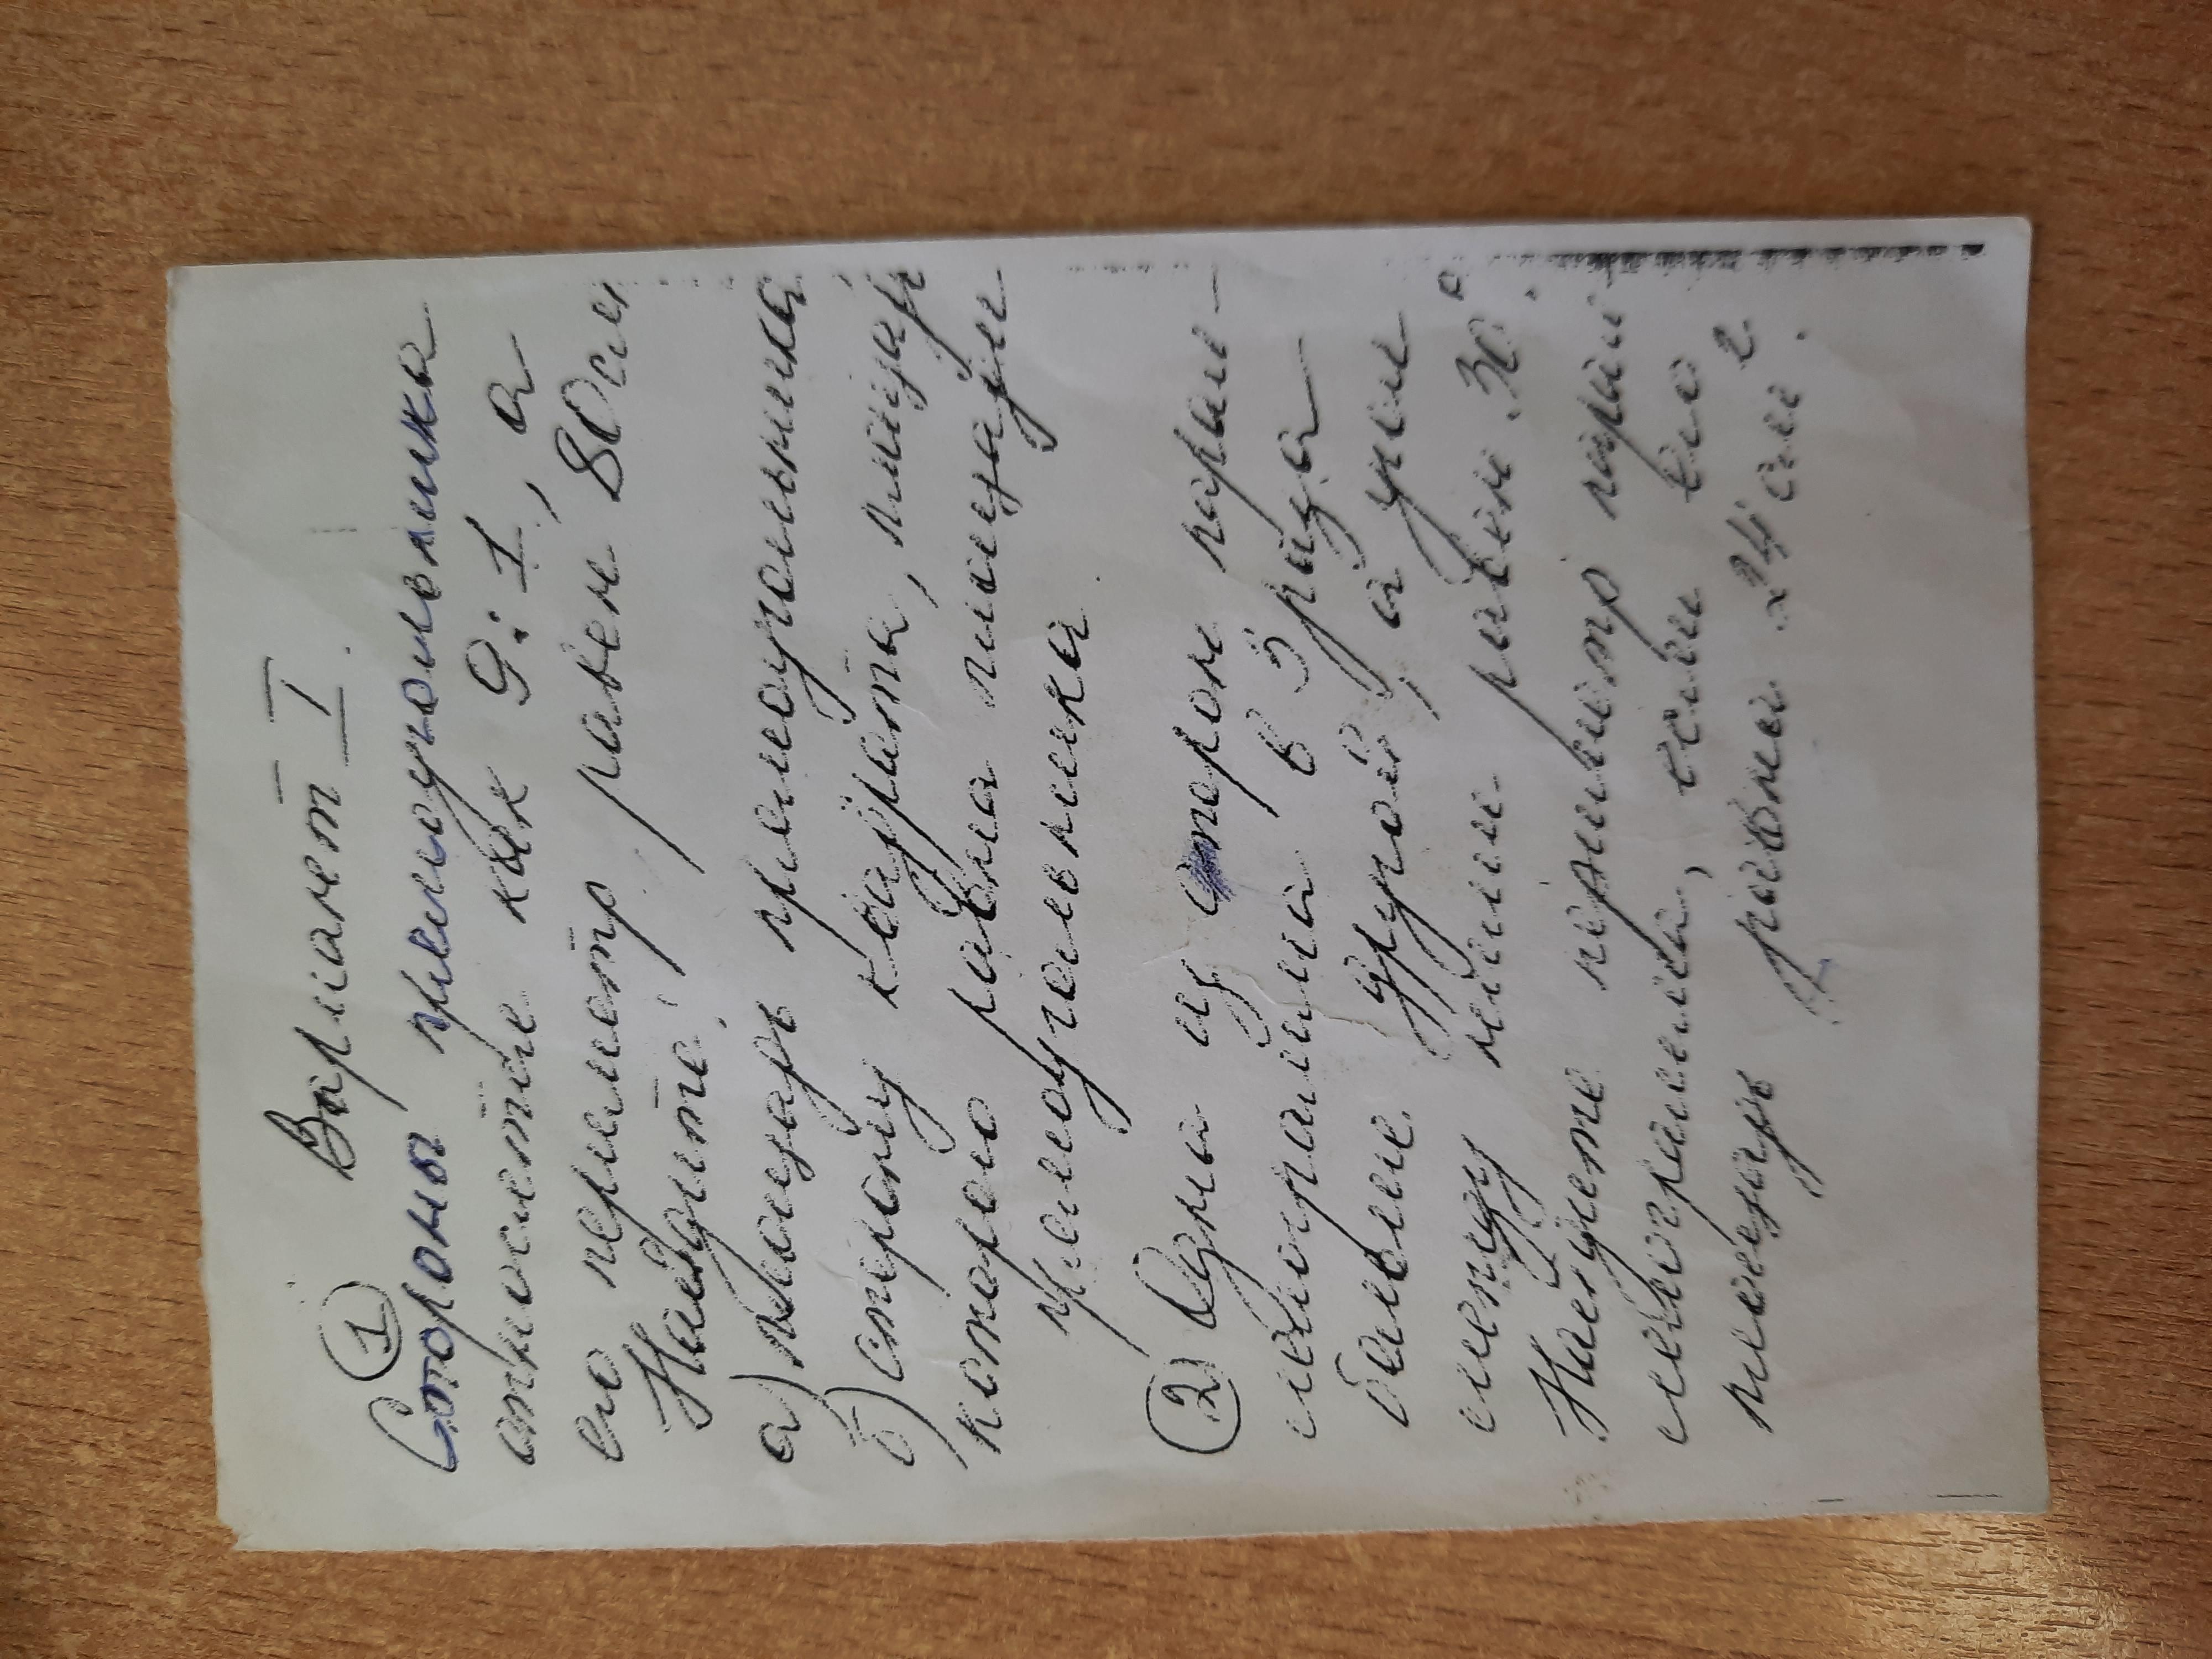 Вариант I.
①
Стороны прямоугольника
относятся как 9:1, а
его периметр равен 80см
Найдите:
а) площадь прямоугольника
б) сторону квадрата, площадь
которого равна площади
прямоугольника.
② Одна из сторон парал-
лелограмма в 3 раза
больше другой, а угол
между ними равен 30°.
Найдите периметр парал-
лелограмма, если его
площадь равна 24 см².